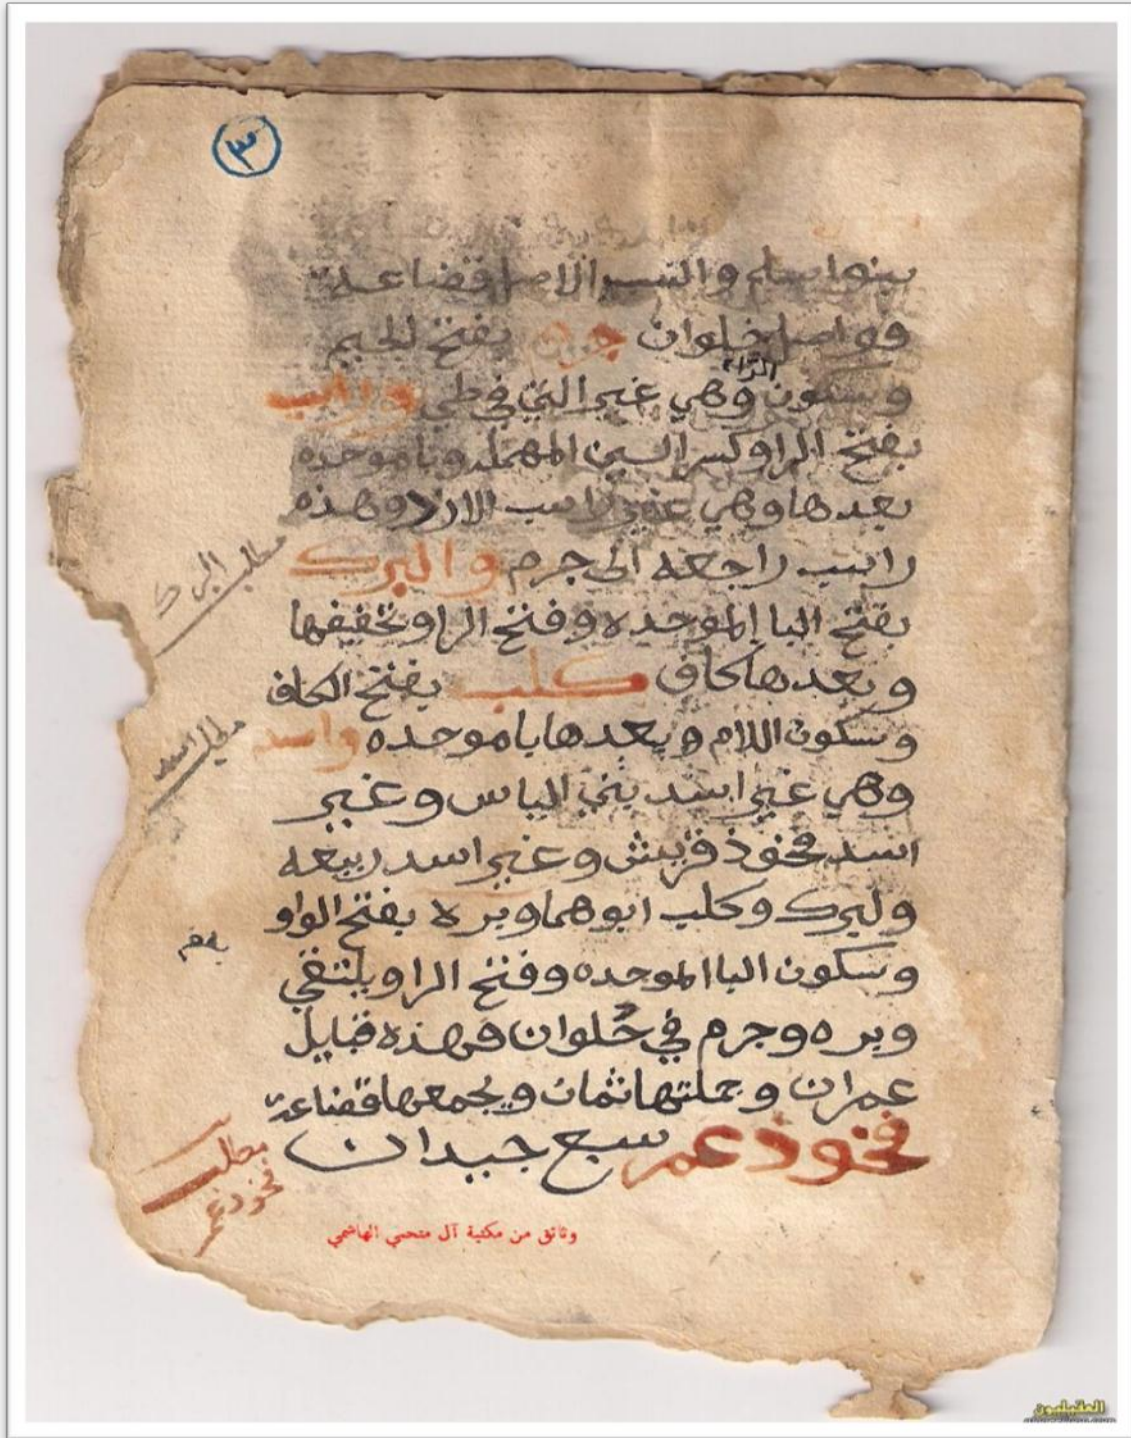 ٣
بنوا سلم والنسب الاصل قضاعة
فواصل حلوان جرم بفتح الجيم
وسكون الراء وهي غير التي في طي وراسب
بفتح الرا وكسر السين المهمله وبا موحده
بعدها وهي غير راسب الازد وهذه
راسب راجعه الى جرم والبرك
مطلب البرك
بفتح البا الموحده وفتح الرا وتخفيفها
وبعدها كاف كلب بفتح الكاف
وسكون اللام وبعدها با موحده واسد
مطلب اسد
وهي غير اسد بني الياس وغير
اسد فخوذ قريش وغير اسد ربيعه
ولبرك وكلب ابوهما وبره بفتح الواو
وسكون البا الموحده وفتح الرا ويلتقي
وبره وجرم في حُلوان فهذه قبايل
عمران وجملتها ثمان ويجمعها قضاعة
فخوذ عمر سبع جيدان
مطلب
فخوذ عمر
وثائق من مكتبة آل متحمي الهاشمي
العقيليون